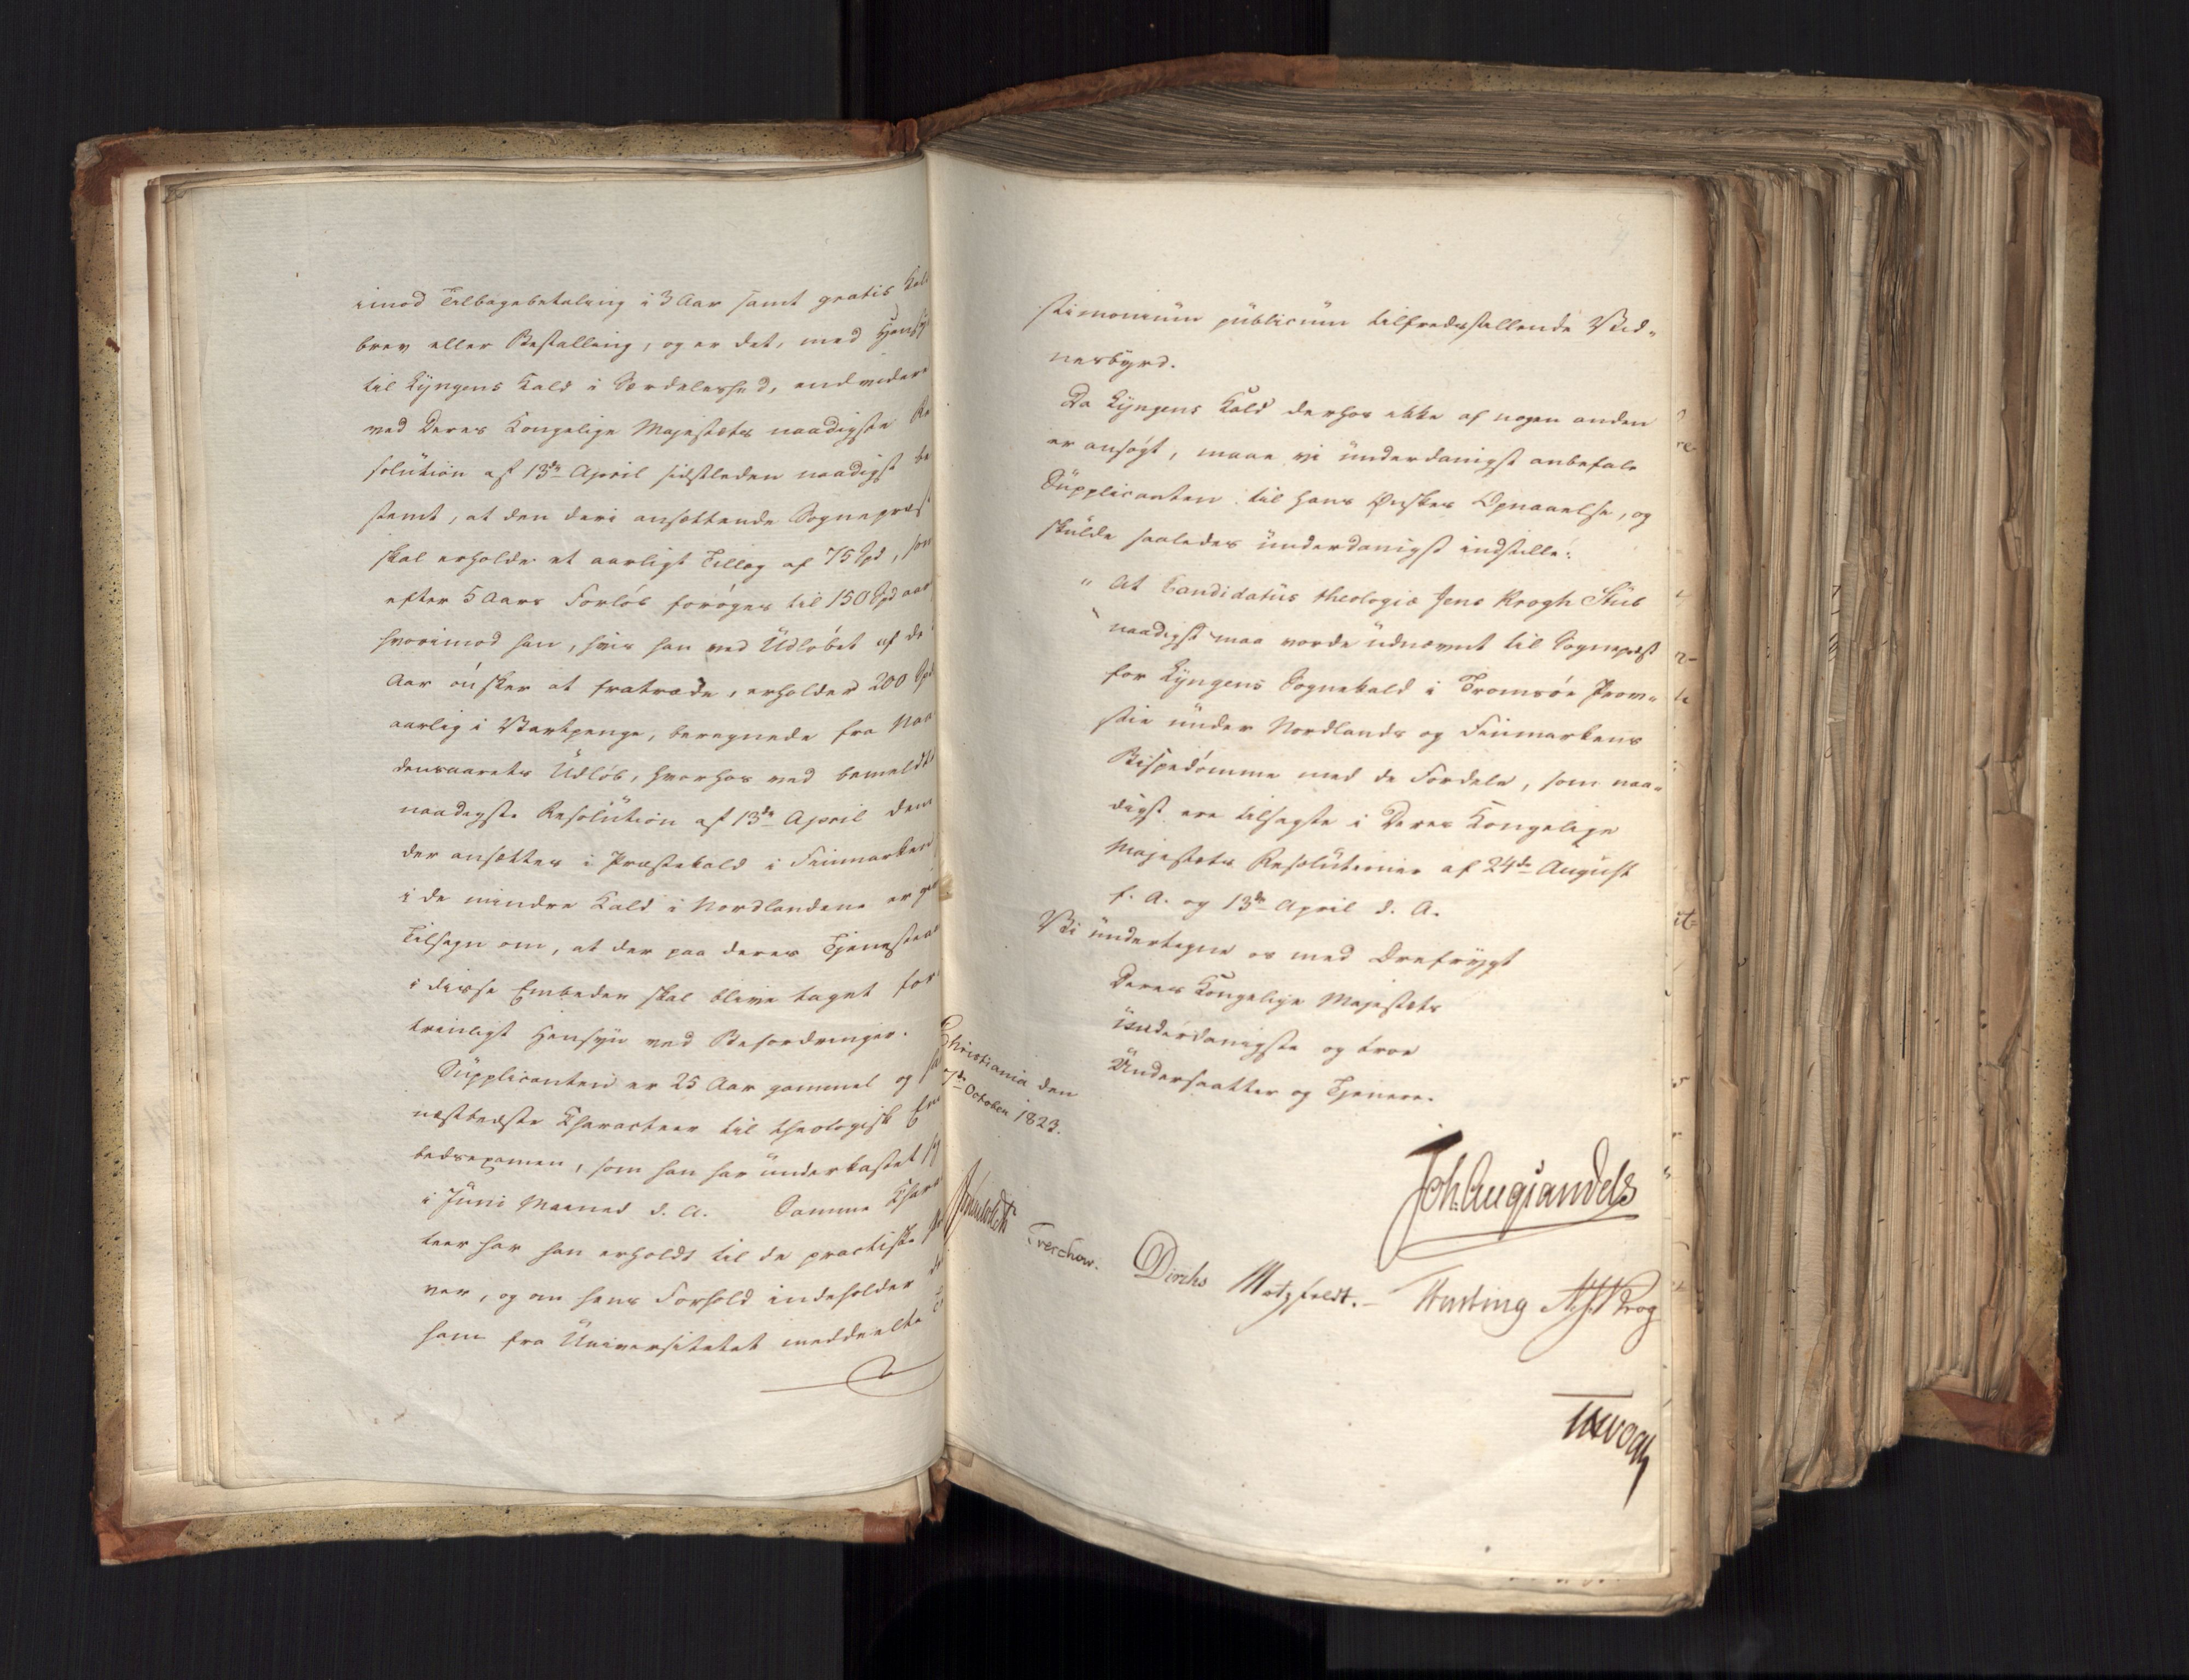 imod Tilbagebetaling i 3 Aar samt gratis Kald
brev eller Bestalling, og er det, med Hensyn
til Lyngens Kald i Særdeleshed, endvidere
ved Deres Kongelige Majestæts naadigste Re
solution af 13de April sidstleden naadigst be
stemt, at den deri ansættende Sognepræst
skal erholde et aarligt Tillæg af 75 Spd, som
efter 5 Aars Forløb forøges til 150 Spd aar
hvorimod han, hvis han ved Udløbet af de
Aar ønsker at fratræde, erholder 200 Spd
aarlig i Vartpenge, beregnede fra Naa
densaarets Udløb, hvorhos ved bemeldte
naadigste Resolution af 13de April dem
der ansættes i Præstekald i Finmarken
i de mindre Kald i Nordlandene er
Tilsagn om, at der paa deres Tjeneste
i disse Embeder skal blive taget for
trinligt Hensyn ved Befordringer.
Supplicanten er 25 Aar gammel og
næstbedste Character til theologisk Em
bedsexamen, som han har underkastet sig
i Juni Maaned d. A. Samme Chara
teer har han erholdt til de practiske Prø
ver, og om hans Forhold indeholder
ham fra Universitetet meddeelte
stimonium publicum tilfredsstillende Vid„
nesbyrd.
Da Lyngens Kald derhos ikke af nogen anden
er ansøgt, maae vi underdanigst anbefale
Supplicanten til hans Ønskes Opnaaelse, og
skulde saaledes underdanigst indstille:
„ At Candidatus theologiæ Jens Krogh Stub
naadigst maa vorde udnævnt til Sognepræst
for Lyngens Sognekald i Tromsøe Prov„
stie under Nordlands og Finmarkens
Bispedømme med de Fordele, som naa„
digst ere tilsagte i Deres Kongelige
Majestæts Resolutioner af 24de August
f. A. og 13de April d. A.
Vi undertegne os med Ærefrygt
Deres Kongelige Majestæts
underdanigste og troe
Undersaatter og Tjenere.
Christiania den
7de October 1823.
Joh: Aug: Sandels
Treschow. Diriks Motzfeldt. Krog